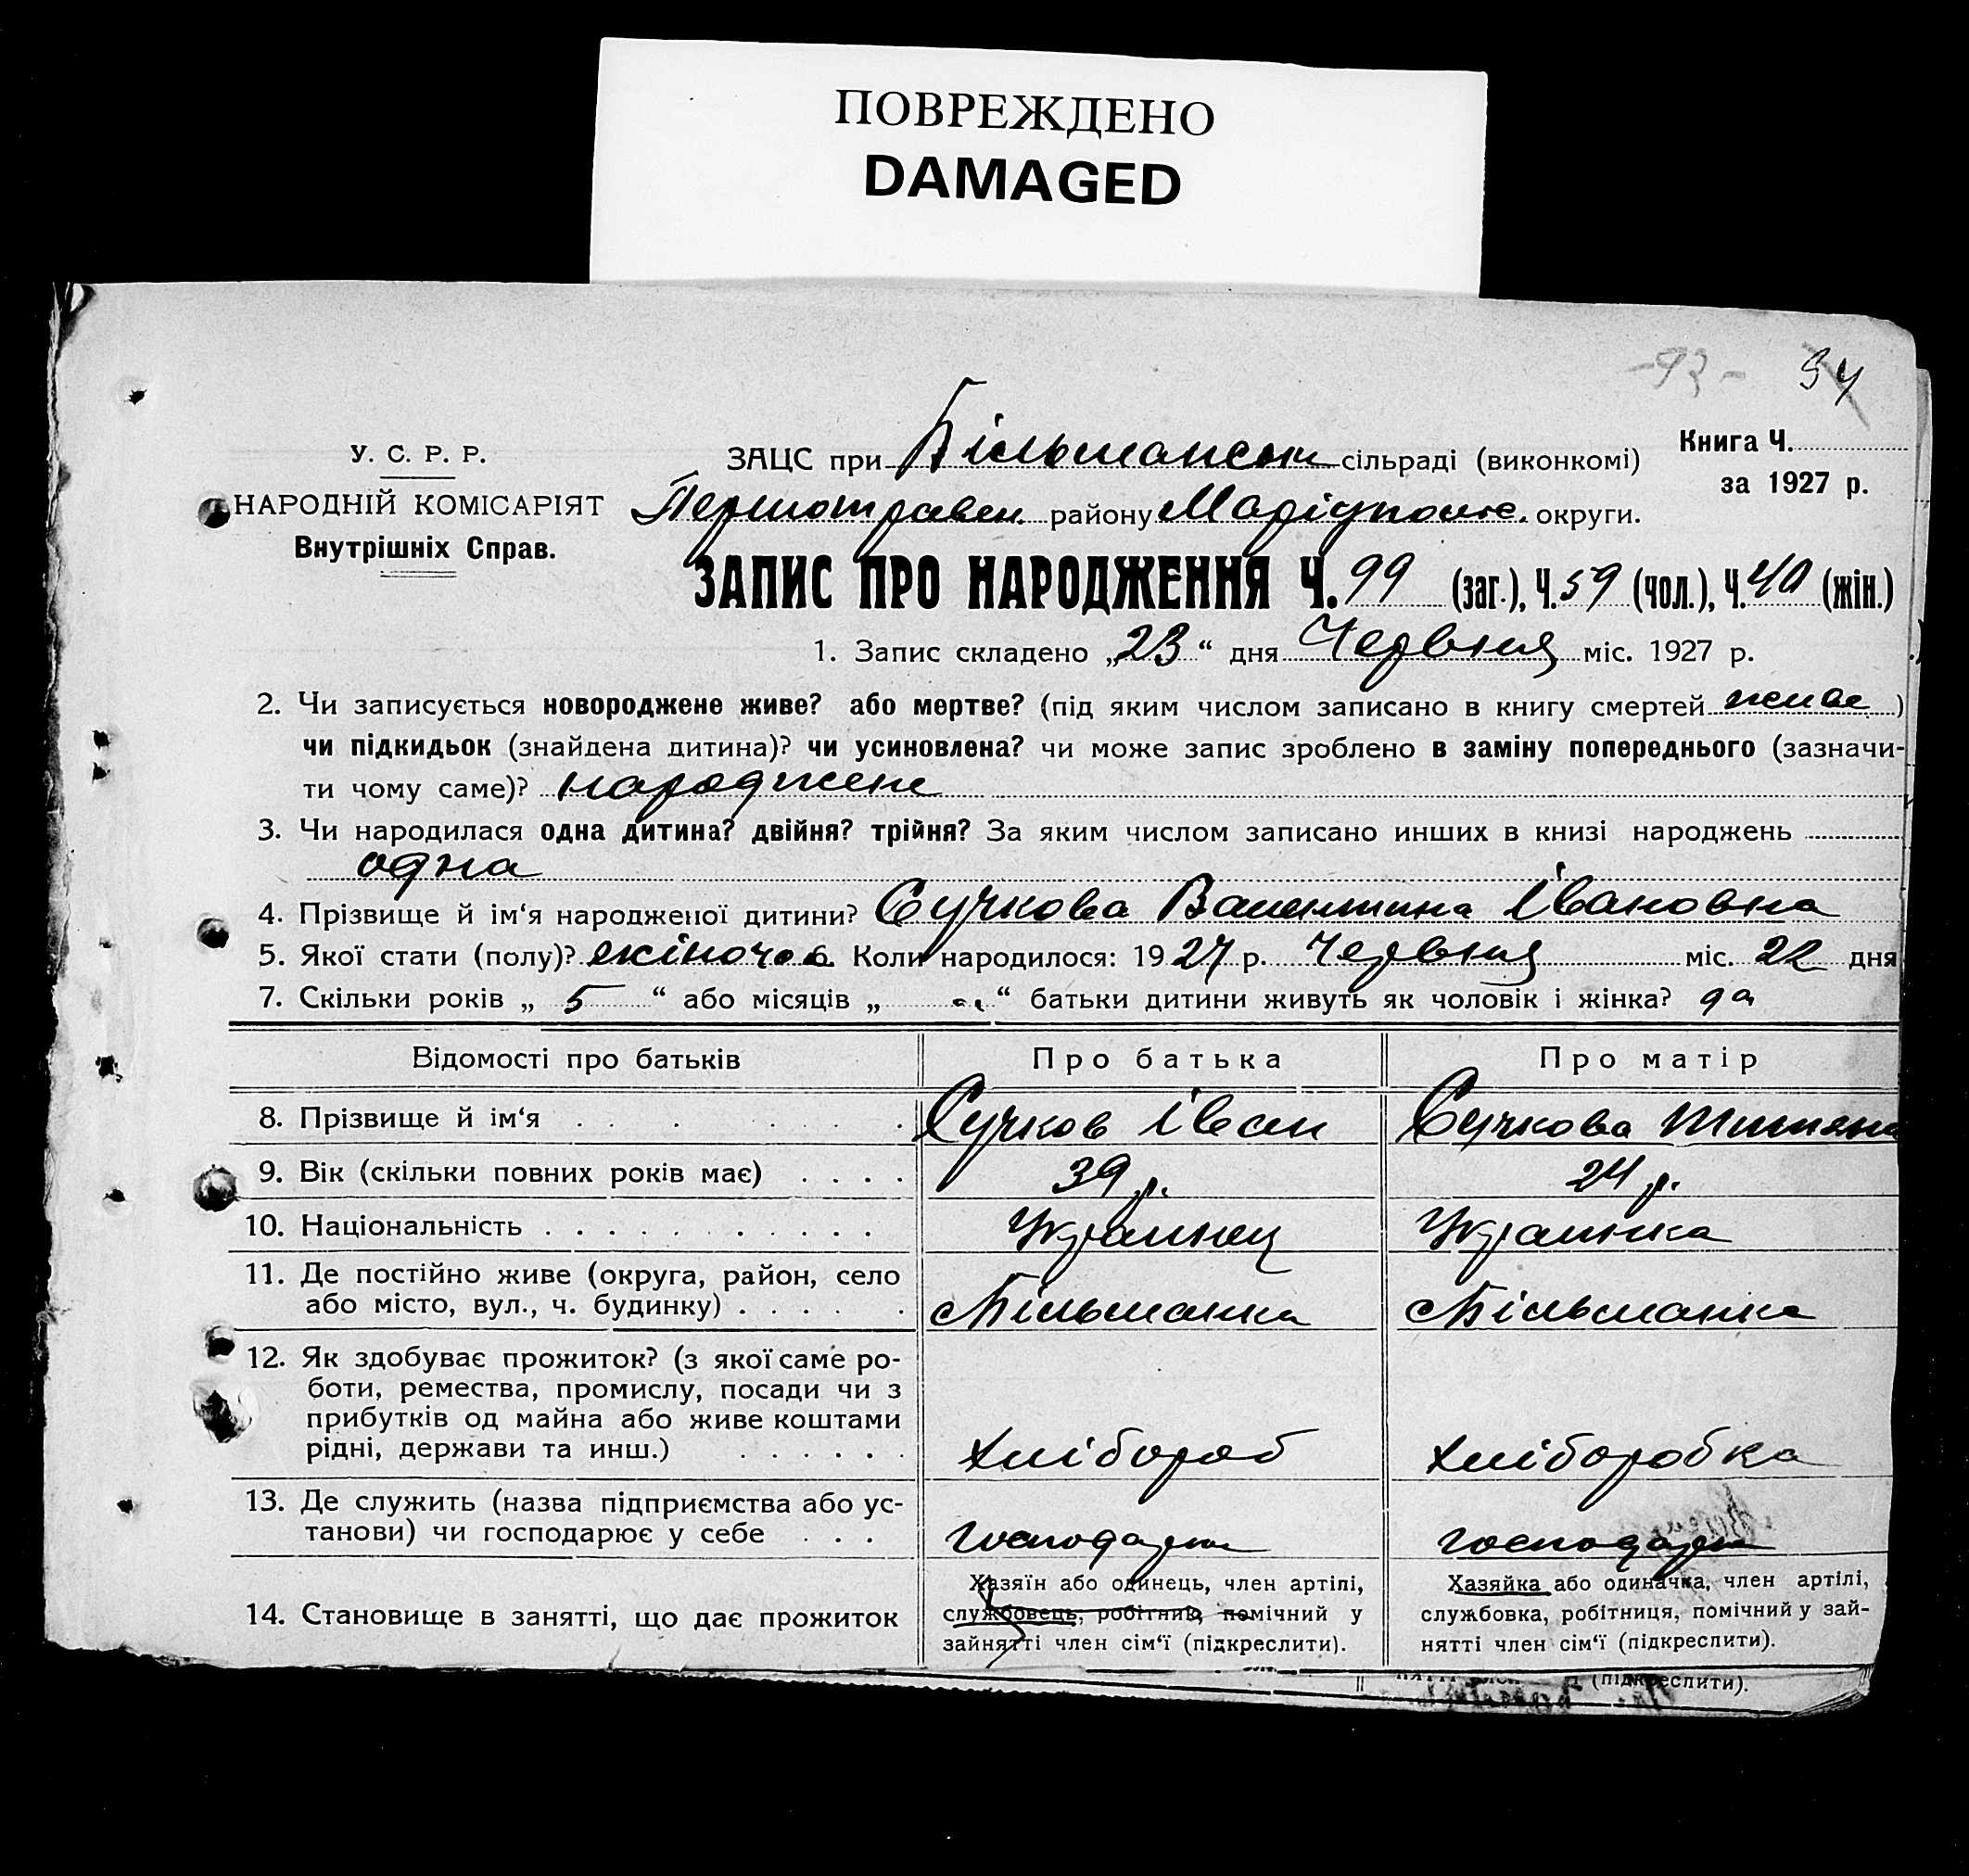 ПОВРЕЖДЕНО
DAMAGED
-93- 34
У. С. Р. Р.
НАРОДНІЙ КОМІСАРІЯТ
Внутрішніх Справ.
ЗАЦС при Більманськ сільраді (виконкомі)
Першотравен. району Маріупольс. округи.
Книга Ч.
за 1927 р.
ЗАПИС ПРО НАРОДЖЕННЯ Ч. 99 (заг.), Ч. 59 (чол.), Ч. 40 (жін.)
1. Запис складено „23“ дня Червня міс. 1927 р.
2. Чи записується новороджене живе? або мертве? (під яким числом записано в книгу смертей живе )
чи підкидьок (знайдена дитина)? чи усиновлена? чи може запис зроблено в заміну попереднього (зазначи-
ти чому саме)? народжене
3. Чи народилася одна дитина? двійня? трійня? За яким числом записано инших в книзі народжень
одна
4. Прізвище й ім‘я народженої дитини? Сучкова Валентина Івановна
5. Якої стати (полу)? жіночої 6. Коли народилося: 1927 р. Червня міс. 22 дня
7. Скільки років „ 5 “ або місяців „ “ батьки дитини живуть як чоловік і жінка? да
Відомості про батьків Про батька Про матір
8. Прізвище й ім‘я Сучков Іван Сучкова Титяна
9. Вік (скільки повних років має) 39 р. 24 р.
10. Національність Украинец Украинка
11. Де постійно живе (округа, район, село
або місто, вул., ч. будинку) Більманка Більманка
12. Як здобуває прожиток? (з якої саме ро-
боти, ремества, промислу, посади чи з
прибутків од майна або живе коштами
рідні, держави та инш.) Хлібороб Хліборобка
13. Де служить (назва підприємства або ус-
танови) чи господарює у себе господарює господарює
14. Становище в занятті, що дає прожиток
Хазяїн або одинець, член артілі,
службовець, робітник, помічний у
зайнятті член сім‘ї (підкреслити).
Хазяйка або одиначка, член артілі,
службовка, робітниця, помічний у зай-
нятті член сім‘ї (підкреслити).
(підкреслити).